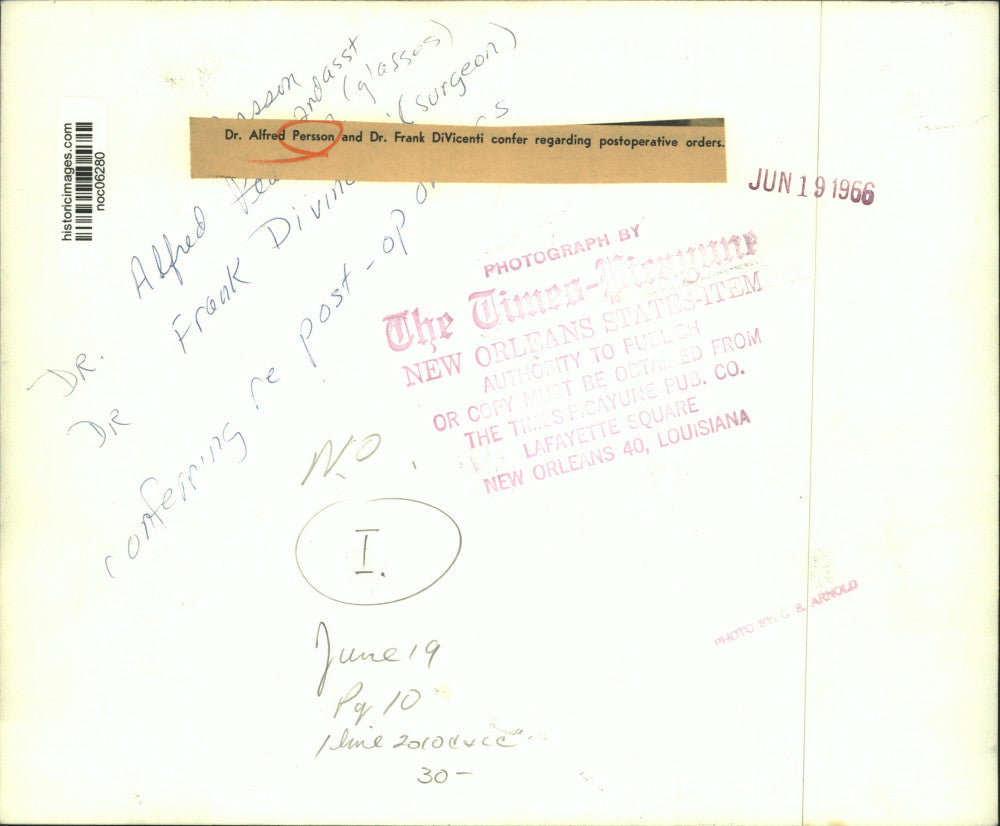 historicimages.com
noc06280
Dr. Alfred Persson and Dr. Frank DiVicenti confer regarding postoperative orders.
JUN 19 1966
DR. Alfred
(glasses)
DR Frank Divin (surgeon)
conferring re post-op
PHOTOGRAPH BY
The Times-Picayune
NEW ORLEANS STATES-ITEM
AUTHORITY TO PUBLISH
OR COPY MUST BE OBTAINED FROM
THE TIMES-PICAYUNE PUB. CO.
LAFAYETTE SQUARE
NEW ORLEANS 40, LOUISIANA
N.O.
I.
June 19
Pg 10
1 line
30-
PHOTO BY: G E. ARNOLD